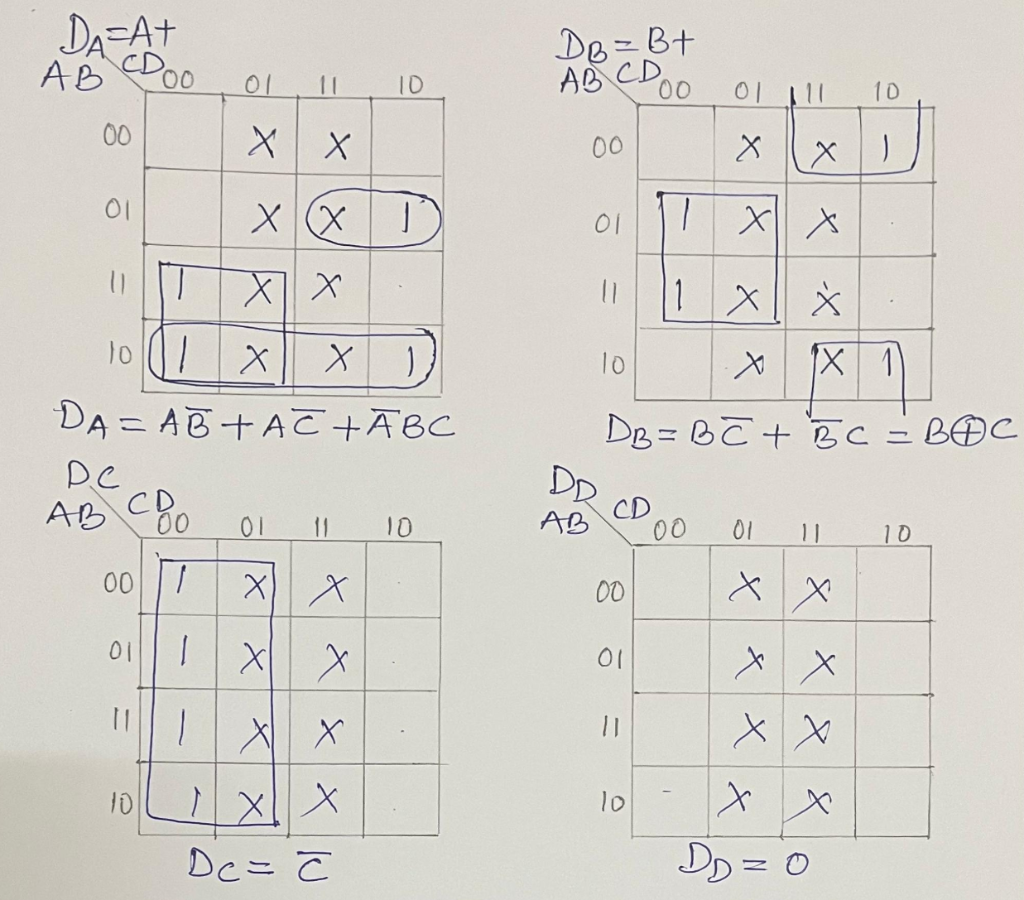 DA=A+
AB CD 00 01 11 10
00 X X
01 X X 1
11 1 X X
10 1 X X 1
DA = AB̅ + AC̅ + A̅BC
DB = B+
AB CD 00 01 11 10
00 X X 1
01 1 X X
11 1 X X
10 X X 1
DB = BC̅ + B̅C = B⊕C
DC
AB CD 00 01 11 10
00 1 X X
01 1 X X
11 1 X X
10 1 X X
DC = C̅
DD
AB CD 00 01 11 10
00 X X
01 X X
11 X X
10 X X
DD = 0